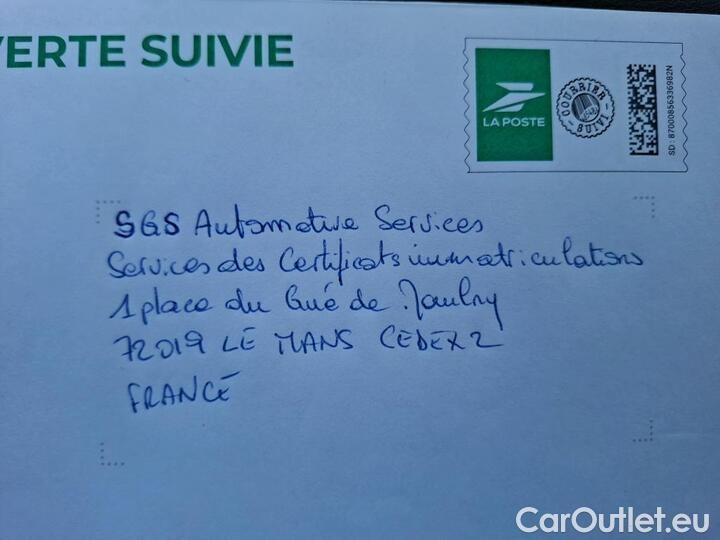 VERTE SUIVIE
LA POSTE
COURRIER SUIVI
SD : 87000856336982N
SGS Automotive Services
Services des Certificats immatriculations
1 place du Gué de Maulny
72019 LE MANS CEDEX 2
FRANCE
CarOutlet.eu